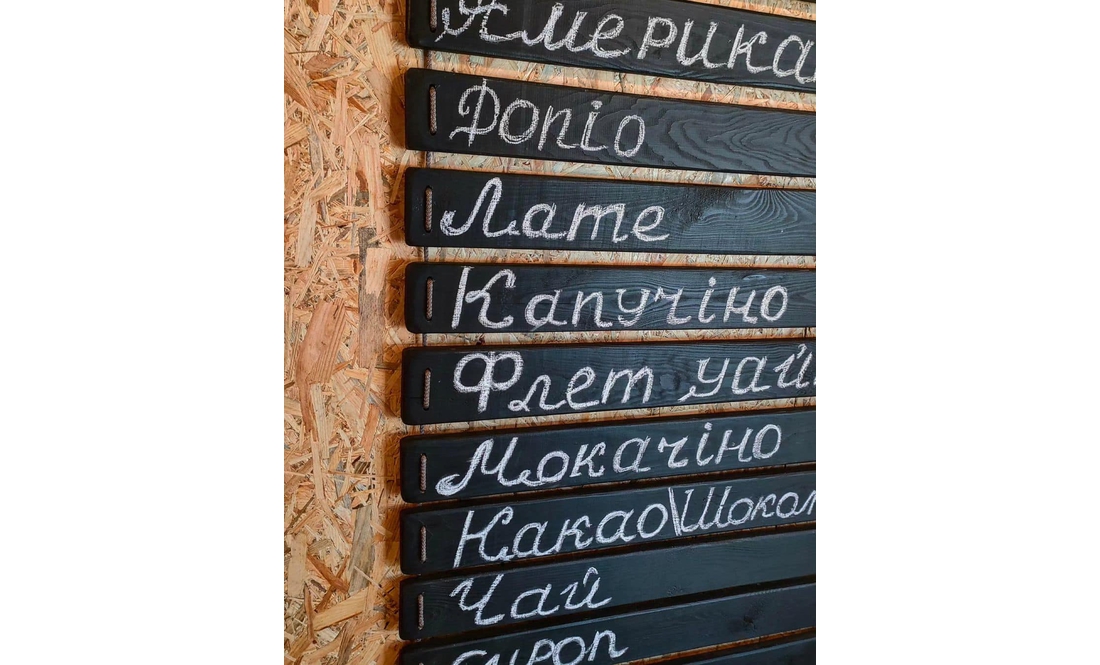 Америка
Допіо
Лате
Капучіно
Флет уай
Мокачіно
Какао\Шокол
Чай
Сироп